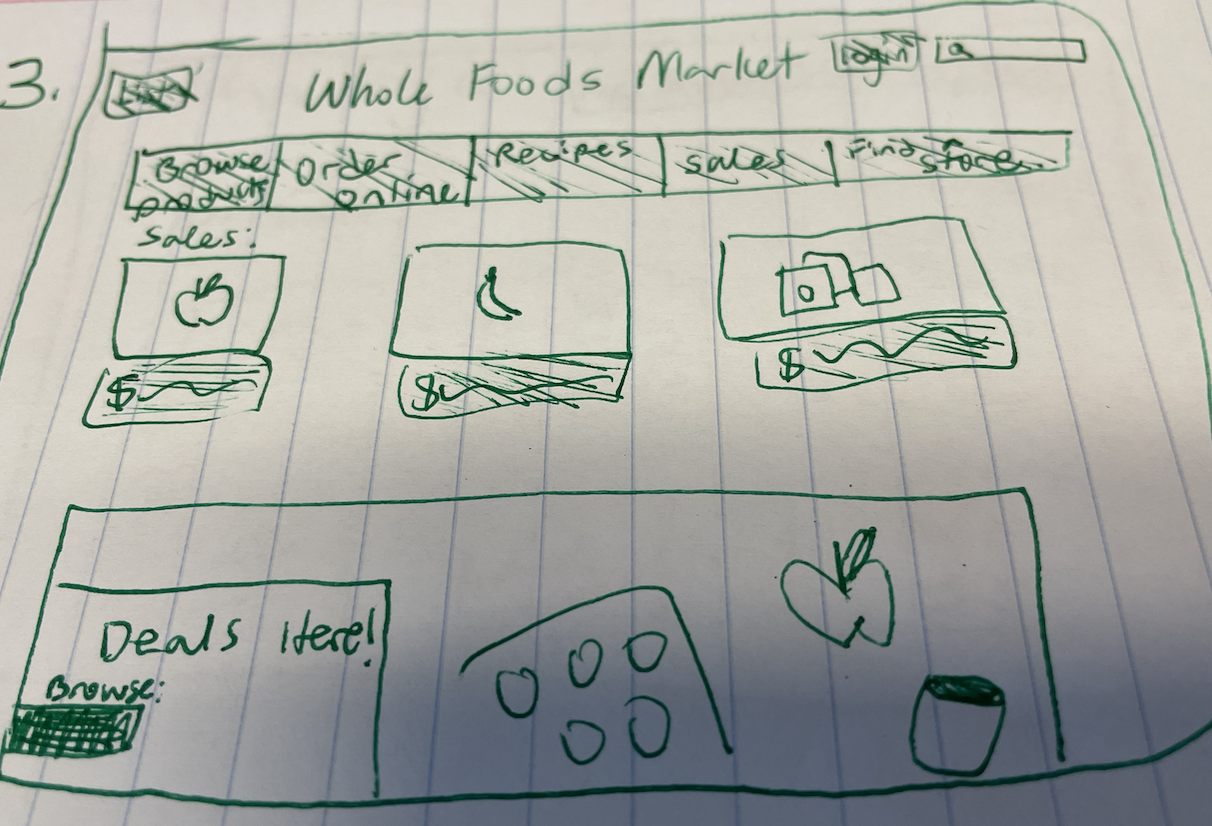 3.
Whole Foods Market
login
Browse products
Order online
Recipes
sales
Find store
Sales:
$
$
$
Deals Here!
Browse: